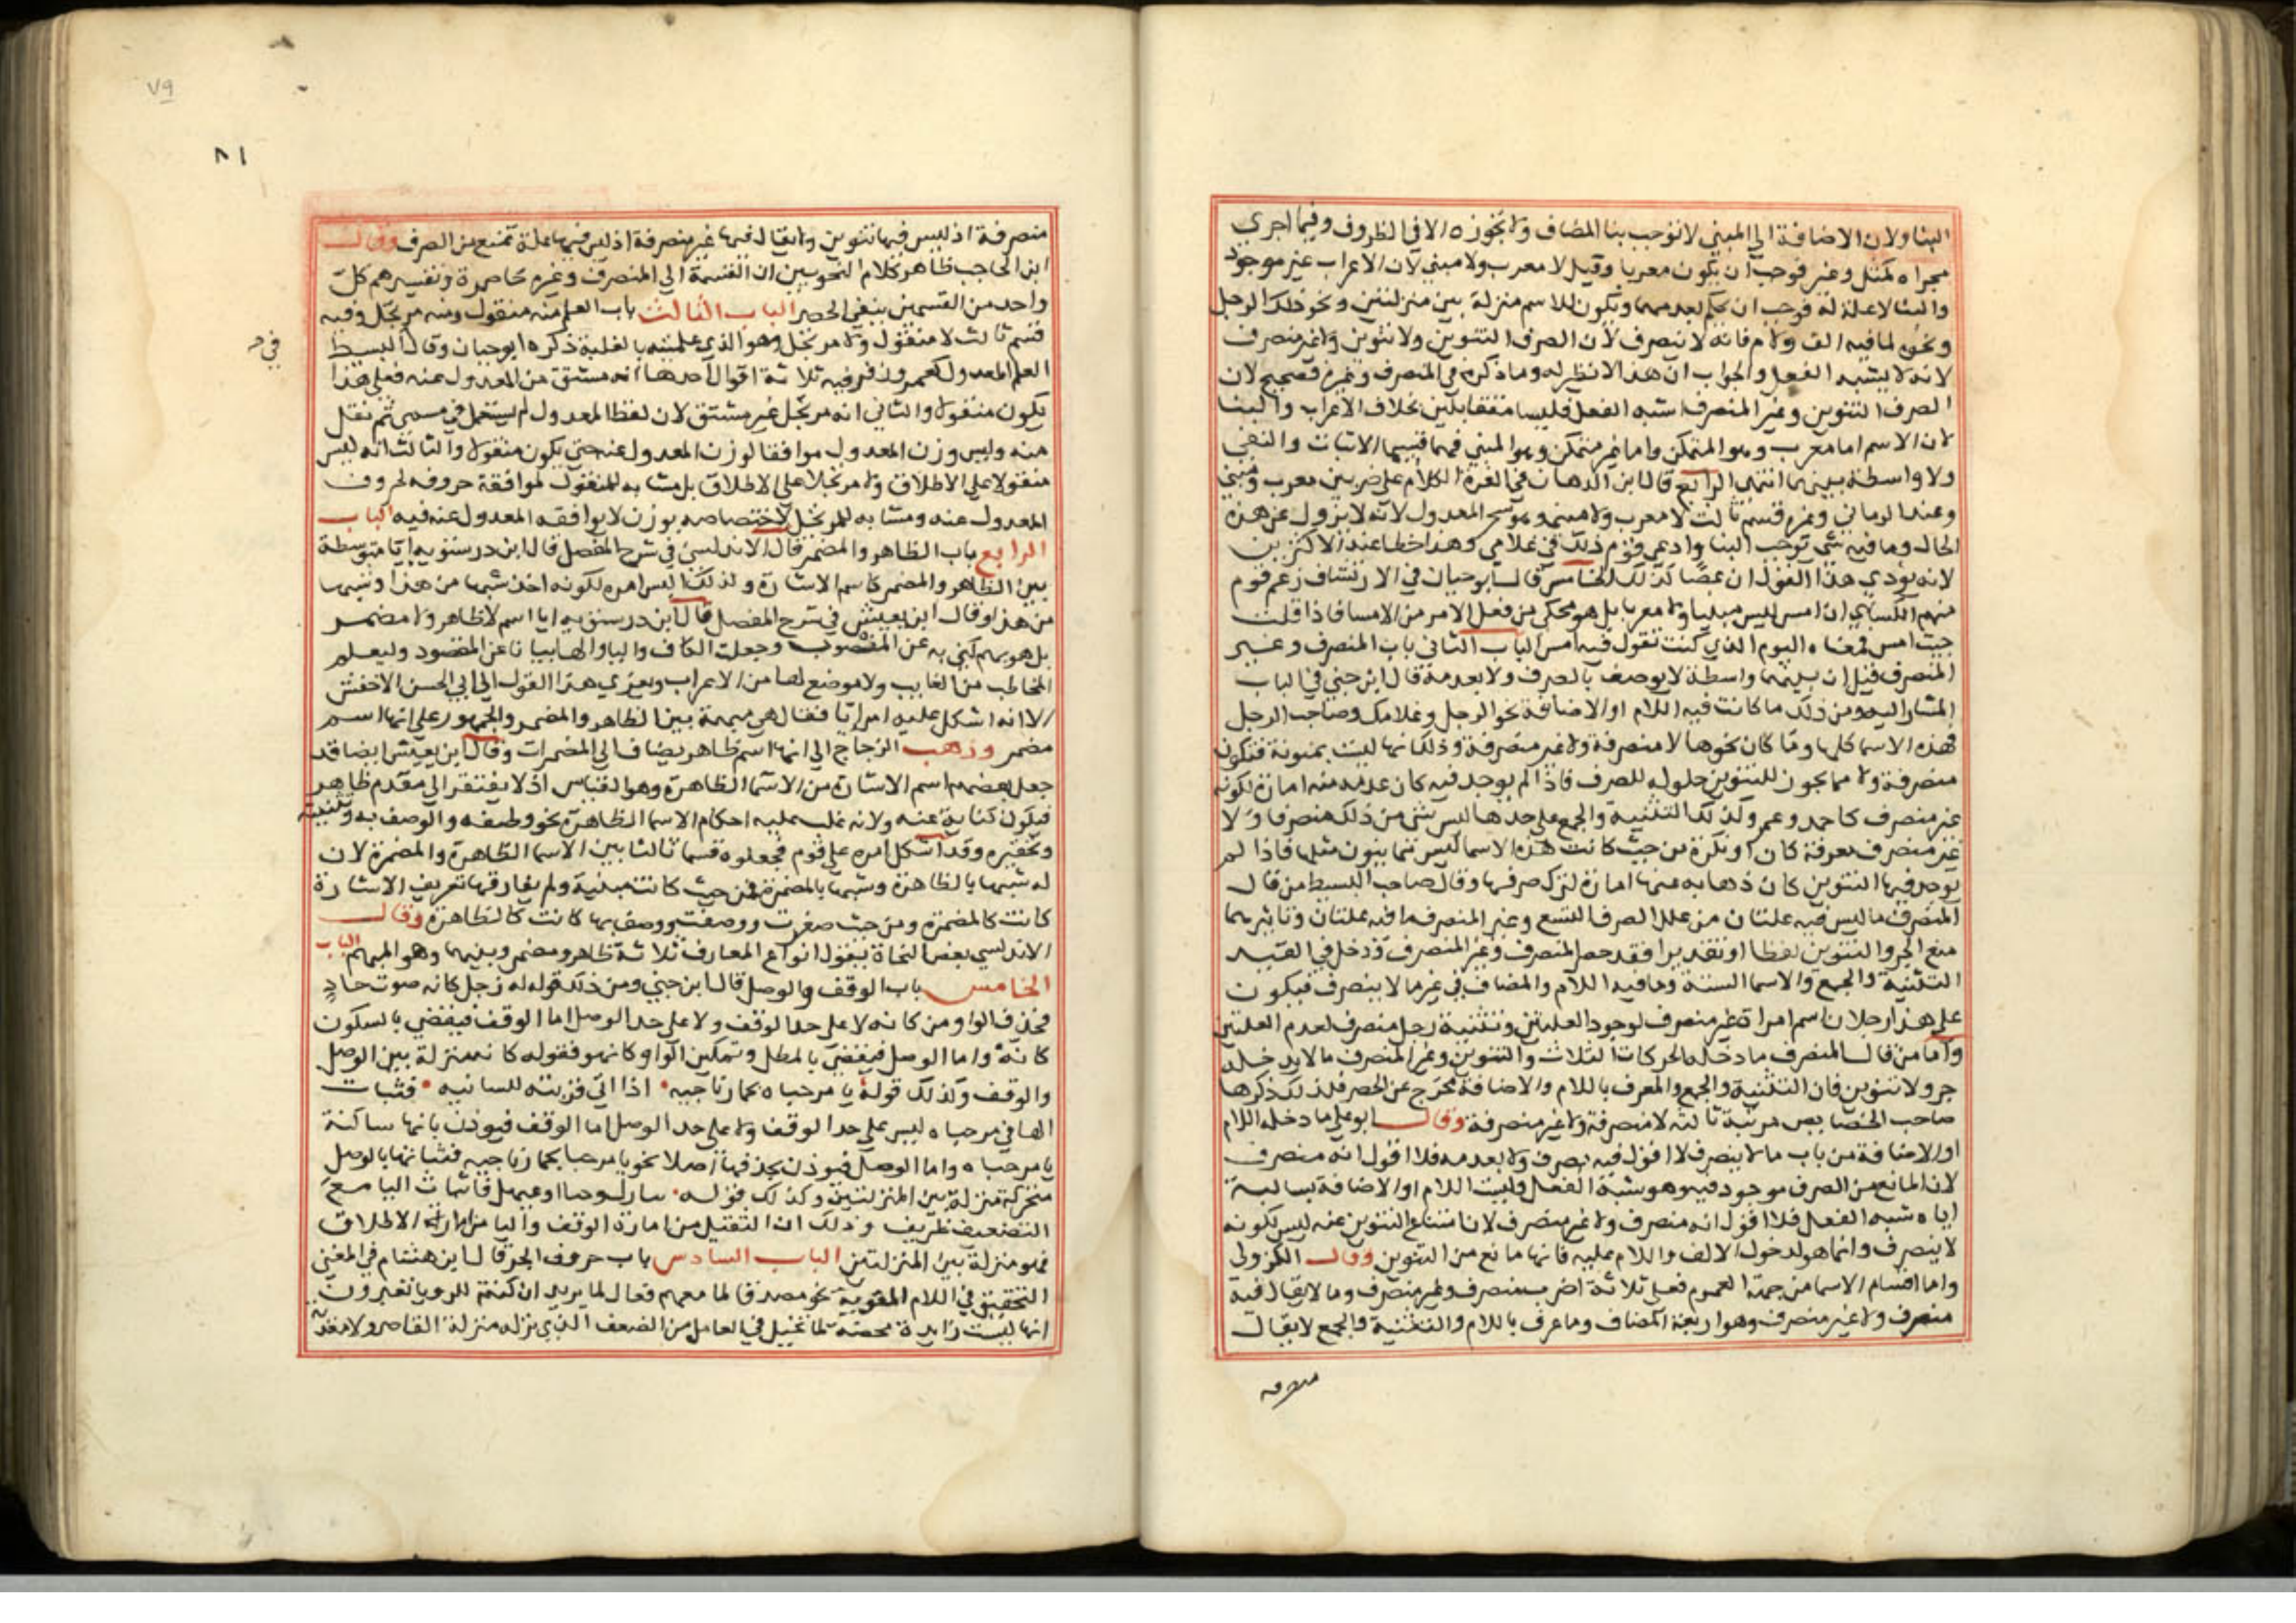 البنا ولان الاضافة الي المبني لا توجب بنا المضاف ولا تجوزه الا في الظروف وفيما اجري
مجراه كمثل وغير فوجب ان يكون معربا وقيل لا معرب ولا مبني لان الاعراب غير موجود
والبنا لا علة له فوجب ان يحكم بعدمهما ويكون للاسم منزلة بين منزلتين ونحو ذلك الرجل
ونحوه لما فيه الف ولام فانه لا ينصرف لان الصرف التنوين ولا تنوين ولا غير منصرف
لانه لا يشبه الفعل والجواب ان هذا لا نظير له وما ذكره في المنصرف وغيره فصحيح لان
الصرف التنوين وغير المنصرف اشبه الفعل فليسا متقابلين بخلاف الاعراب والبنا
لان الاسم اما معرب وهو المتمكن واما غير متمكن وهو المبني فهما قسيما الاثبات والنفي
ولا واسطة بينهما انتهى الرابع قال ابن الدهان في الغرة الكلام على ضربين معرب ومبني
وعند الرماني وغيره قسم ثالث لا معرب ولا مبني وهو سحر المعدول لانه لا يزول عن هذه
الحال وما فيه شي توجب البنا وادعى قوم ذلك في غلامي وهذا خطا عند الاكثرين
لانه يؤدي هذا القول ان عصا كذلك الخامس قال ابو حيان في الارتشاف زعم قوم
منهم الكسائي ان امس ليس مبنيا ولا معربا بل هو محكي من فعل الامر من الامسا فاذا قلت
جيت امس فمعناه اليوم الذي كنت تقول فيه امس الباب الثاني باب المنصرف وغير
المنصرف قيل ان بينهما واسطة لا يوصف بالصرف ولا بعدمه قال ابن جني في الباب
المشار اليه ومن ذلك ما كانت فيه اللام او الاضافة نحو الرجل وغلامك وصاحب الرجل
فهذه الاسما كلها وما كان نحوها لا منصرفة ولا غير منصرفة وذلك انها ليست بمنونة فتكون
منصرفة ولا مما يجوز للتنوين حلوله للصرف فاذا لم يوجد فيه كان عدمه منه امارة لكونه
غير منصرف كاحمد وعمر وكذلك التثنية والجمع على حدها ليس شي من ذلك منصرفا ولا
غير منصرف معرفة كان او نكرة من حيث كانت هذه الاسما ليس مما ينون مثلها فاذا لم
يوجد فيها التنوين كان ذهابه عنها امارة لترك صرفها وقال صاحب البسيط من قال
المنصرف ما ليس فيه علتان من علل الصرف التسع وغير المنصرف ما فيه علتان وتاثيرهما
منع الجر والتنوين لفظا او تقديرا فقد حصر المنصرف وغير المنصرف ودخل في القيد
التثنية والجمع والاسما الستة وما فيه اللام والمضاف في غير ما لا ينصرف فيكون
على هذا رجلان اسم امراة غير منصرف لوجود العلتين وتثنية رجل منصرف لعدم العلتين
واما من قال المنصرف ما دخله الحركات الثلاث والتنوين وغير المنصرف ما لا يدخله
جر ولا تنوين فان التثنية والجمع والمعرف باللام والاضافة يخرج عن الحصر فلذلك ذكرها
صاحب الخصايص مرتبة ثالثة لا منصرفة ولا غير منصرفة وقال ابو علي ما دخله اللام
او الاضافة من باب ما لا ينصرف لا اقول فيه بصرف ولا بعدمه فلا اقول انه منصرف
لان المانع من الصرف موجود فيه وهو شبه الفعل وليست اللام او الاضافة بسالبة
اياه شبه الفعل فلا اقول انه منصرف ولا غير منصرف لان امتناع التنوين عنه ليس لكونه
لا ينصرف وانما هو لدخول الالف واللام عليه فانها مانع من التنوين وقال الكزولي
واما اقسام الاسما من جهة العموم فعلى ثلاثة اضرب منصرف وغير منصرف وما لا يقال فيه
منصرف ولا غير منصرف وهو اربعة المضاف وما عرف باللام والتثنية والجمع لا يقال
منصرفة
٧٩
٨١
منصرفة اذ ليس فيها تنوين ولا يقال فيها غير منصرفة اذ ليس فيها علة تمنع من الصرف وقال
ابن الحاجب ظاهر كلام النحويين ان القسمة الي المنصرف وغيره حاصرة وتفسيرهم كل
واحد من القسمين ينفي الحصر الباب الثالث باب العلم منه منقول ومنه مرتجل وفيه
قسم ثالث لا منقول ولا مرتجل وهو الذي علميته بالغلبة ذكره ابو حيان وقال في البسيط
العلم المعدول كعمر وزفر فيه ثلاثة اقوال احدها انه مشتق من المعدول عنه فعلى هذا
يكون منقولا والثاني انه مرتجل غير مشتق لان لفظ المعدول لم يستعمل في مسمى ثم نقل
منه وليس وزن المعدول موافقا لوزن المعدول عنه حتى يكون منقولا والثالث انه ليس
منقولا على الاطلاق ولا مرتجلا على الاطلاق بل مشابه للمنقول لموافقة حروفه لحروف
المعدول عنه ومشابه للمرتجل لاختصاصه بوزن لا يوافقه المعدول عنه فيه الباب
الرابع باب الظاهر والمضمر قال الاندلسي في شرح المفصل قال ابن درستويه ايا متوسطة
بين الظاهر والمضمر كاسم الاشارة ولذلك التبس امره لكونه اخذ شبها من هذا وشبها
من هذا وقال ابن يعيش في شرح المفصل قال ابن درستويه ايا اسم لا ظاهر ولا مضمر
بل هو مبهم كني به عن المنصوب وجعلت الكاف واليا والها بيانا عن المقصود وليعلم
المخاطب من الغايب ولا موضع لها من الاعراب ويعزي هذا القول الي ابي الحسن الاخفش
الا انه اشكل عليه امر ايا فقال هي مبهمة بين الظاهر والمضمر والجمهور على انها اسم
مضمر وذهب الزجاج الي انها اسم ظاهر يضاف الي المضمرات وقال ابن يعيش ايضا قد
جعل بعضهم اسم الاشارة من الاسما الظاهرة وهو القياس اذ لا يفتقر الي مقدم ظاهر
فيكون كناية عنه ولانه غلب عليه احكام الاسما الظاهرة نحو وصفه والوصف به وتثنيته
وتحقيره وقد اشكل امره على قوم فجعلوه قسما ثالثا بين الاسما الظاهرة والمضمرة لان
له شبها بالظاهرة وشبها بالمضمرة فمن حيث كانت مبنية ولم يفارقها تعريف الاشارة
كانت كالمضمرة ومن حيث صغرت ووصفت ووصف بها كانت كالظاهرة وقال
الاندلسي بعض النحاة يقول انواع المعارف ثلاثة ظاهر ومضمر وبينهما وهو المبهم الباب
الخامس باب الوقف والوصل قال ابن جني ومن ذلك قوله له زجل كانه صوت حاد
فحذف الواو من كانه لا على حد الوقف ولا على حد الوصل اما الوقف فيقضي بالسكون
كانه واما الوصل فيقضي بالمطل وتمكين الواو كانهو فقوله كانه منزلة بين الوصل
والوقف وكذلك قوله يا مرحباه بحمار ناجيه • اذا اتى قربته للسانيه • فثبات
الها في مرحباه ليس على حد الوقف ولا على حد الوصل اما الوقف فيوذن بانها ساكنة
يا مرحباه واما الوصل فيوذن بحذفها اصلا نحو يا مرحبا بحمار ناجيه فثباتها بالوصل
متحركة منزلة بين المنزلتين وكذلك قوله • ببازل وجنا او عيهل فاثبات اليا مع
التضعيف ظريف وذلك ان التثقيل من امارة الوقف واليا من امارة الاطلاق
فهو منزلة بين المنزلتين الباب السادس باب حروف الجر قال ابن هشام في المغني
التحقيق في اللام المقوية نحو مصدقا لما معهم فعال لما يريد ان كنتم للرويا تعبرون
انها ليست زايدة محضة لما تخيل في العامل من الضعف الذي نزله منزلة القاصر ولا معدية